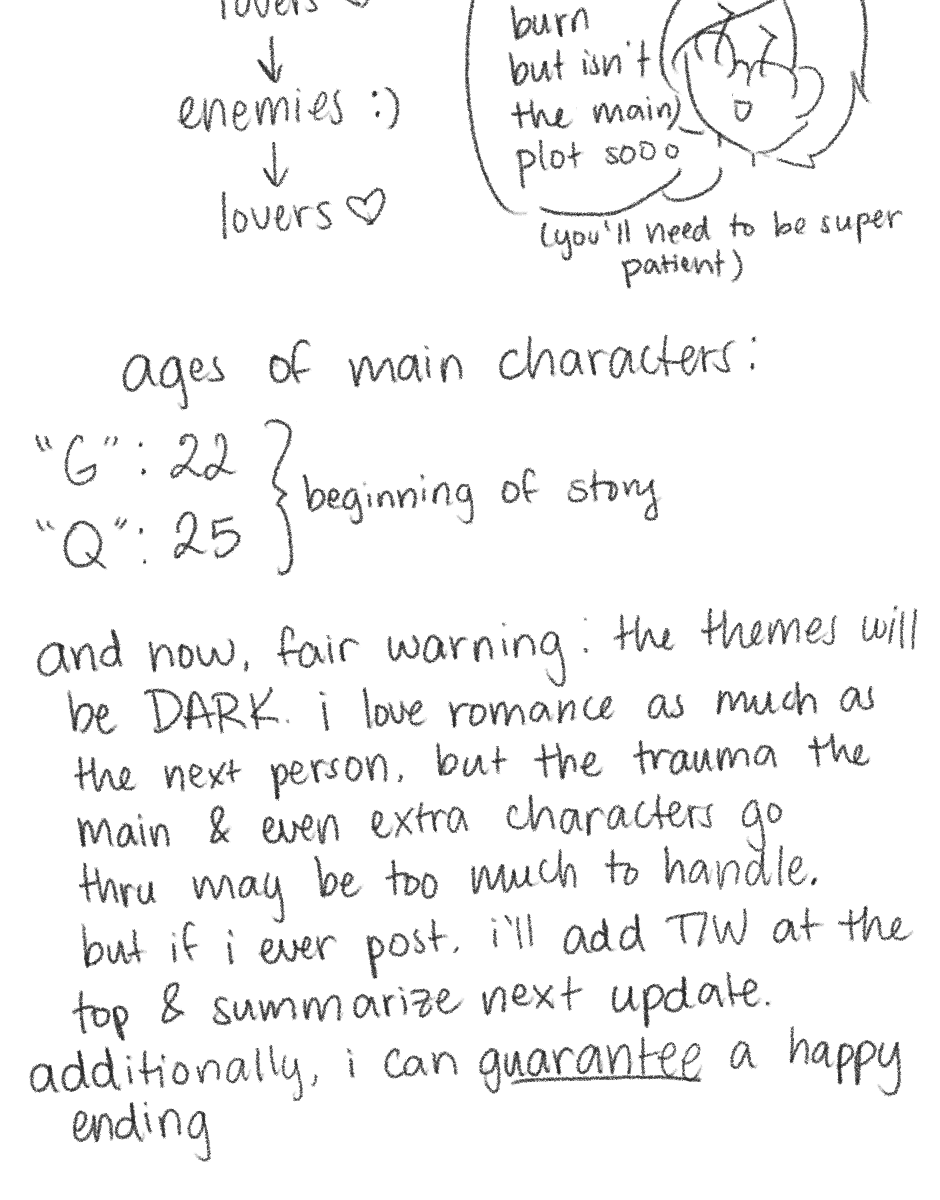 lovers ♡
↓
enemies :)
↓
lovers ♡
burn
but isn't
the main)
plot sooo
(you'll need to be super
patient)
ages of main characters:
"G": 22
"Q": 25
beginning of story
and now, fair warning: the themes will
be DARK. i love romance as much as
the next person, but the trauma the
main & even extra characters go
thru may be too much to handle.
but if i ever post, i'll add T/W at the
top & summarize next update.
additionally, i can guarantee a happy
ending